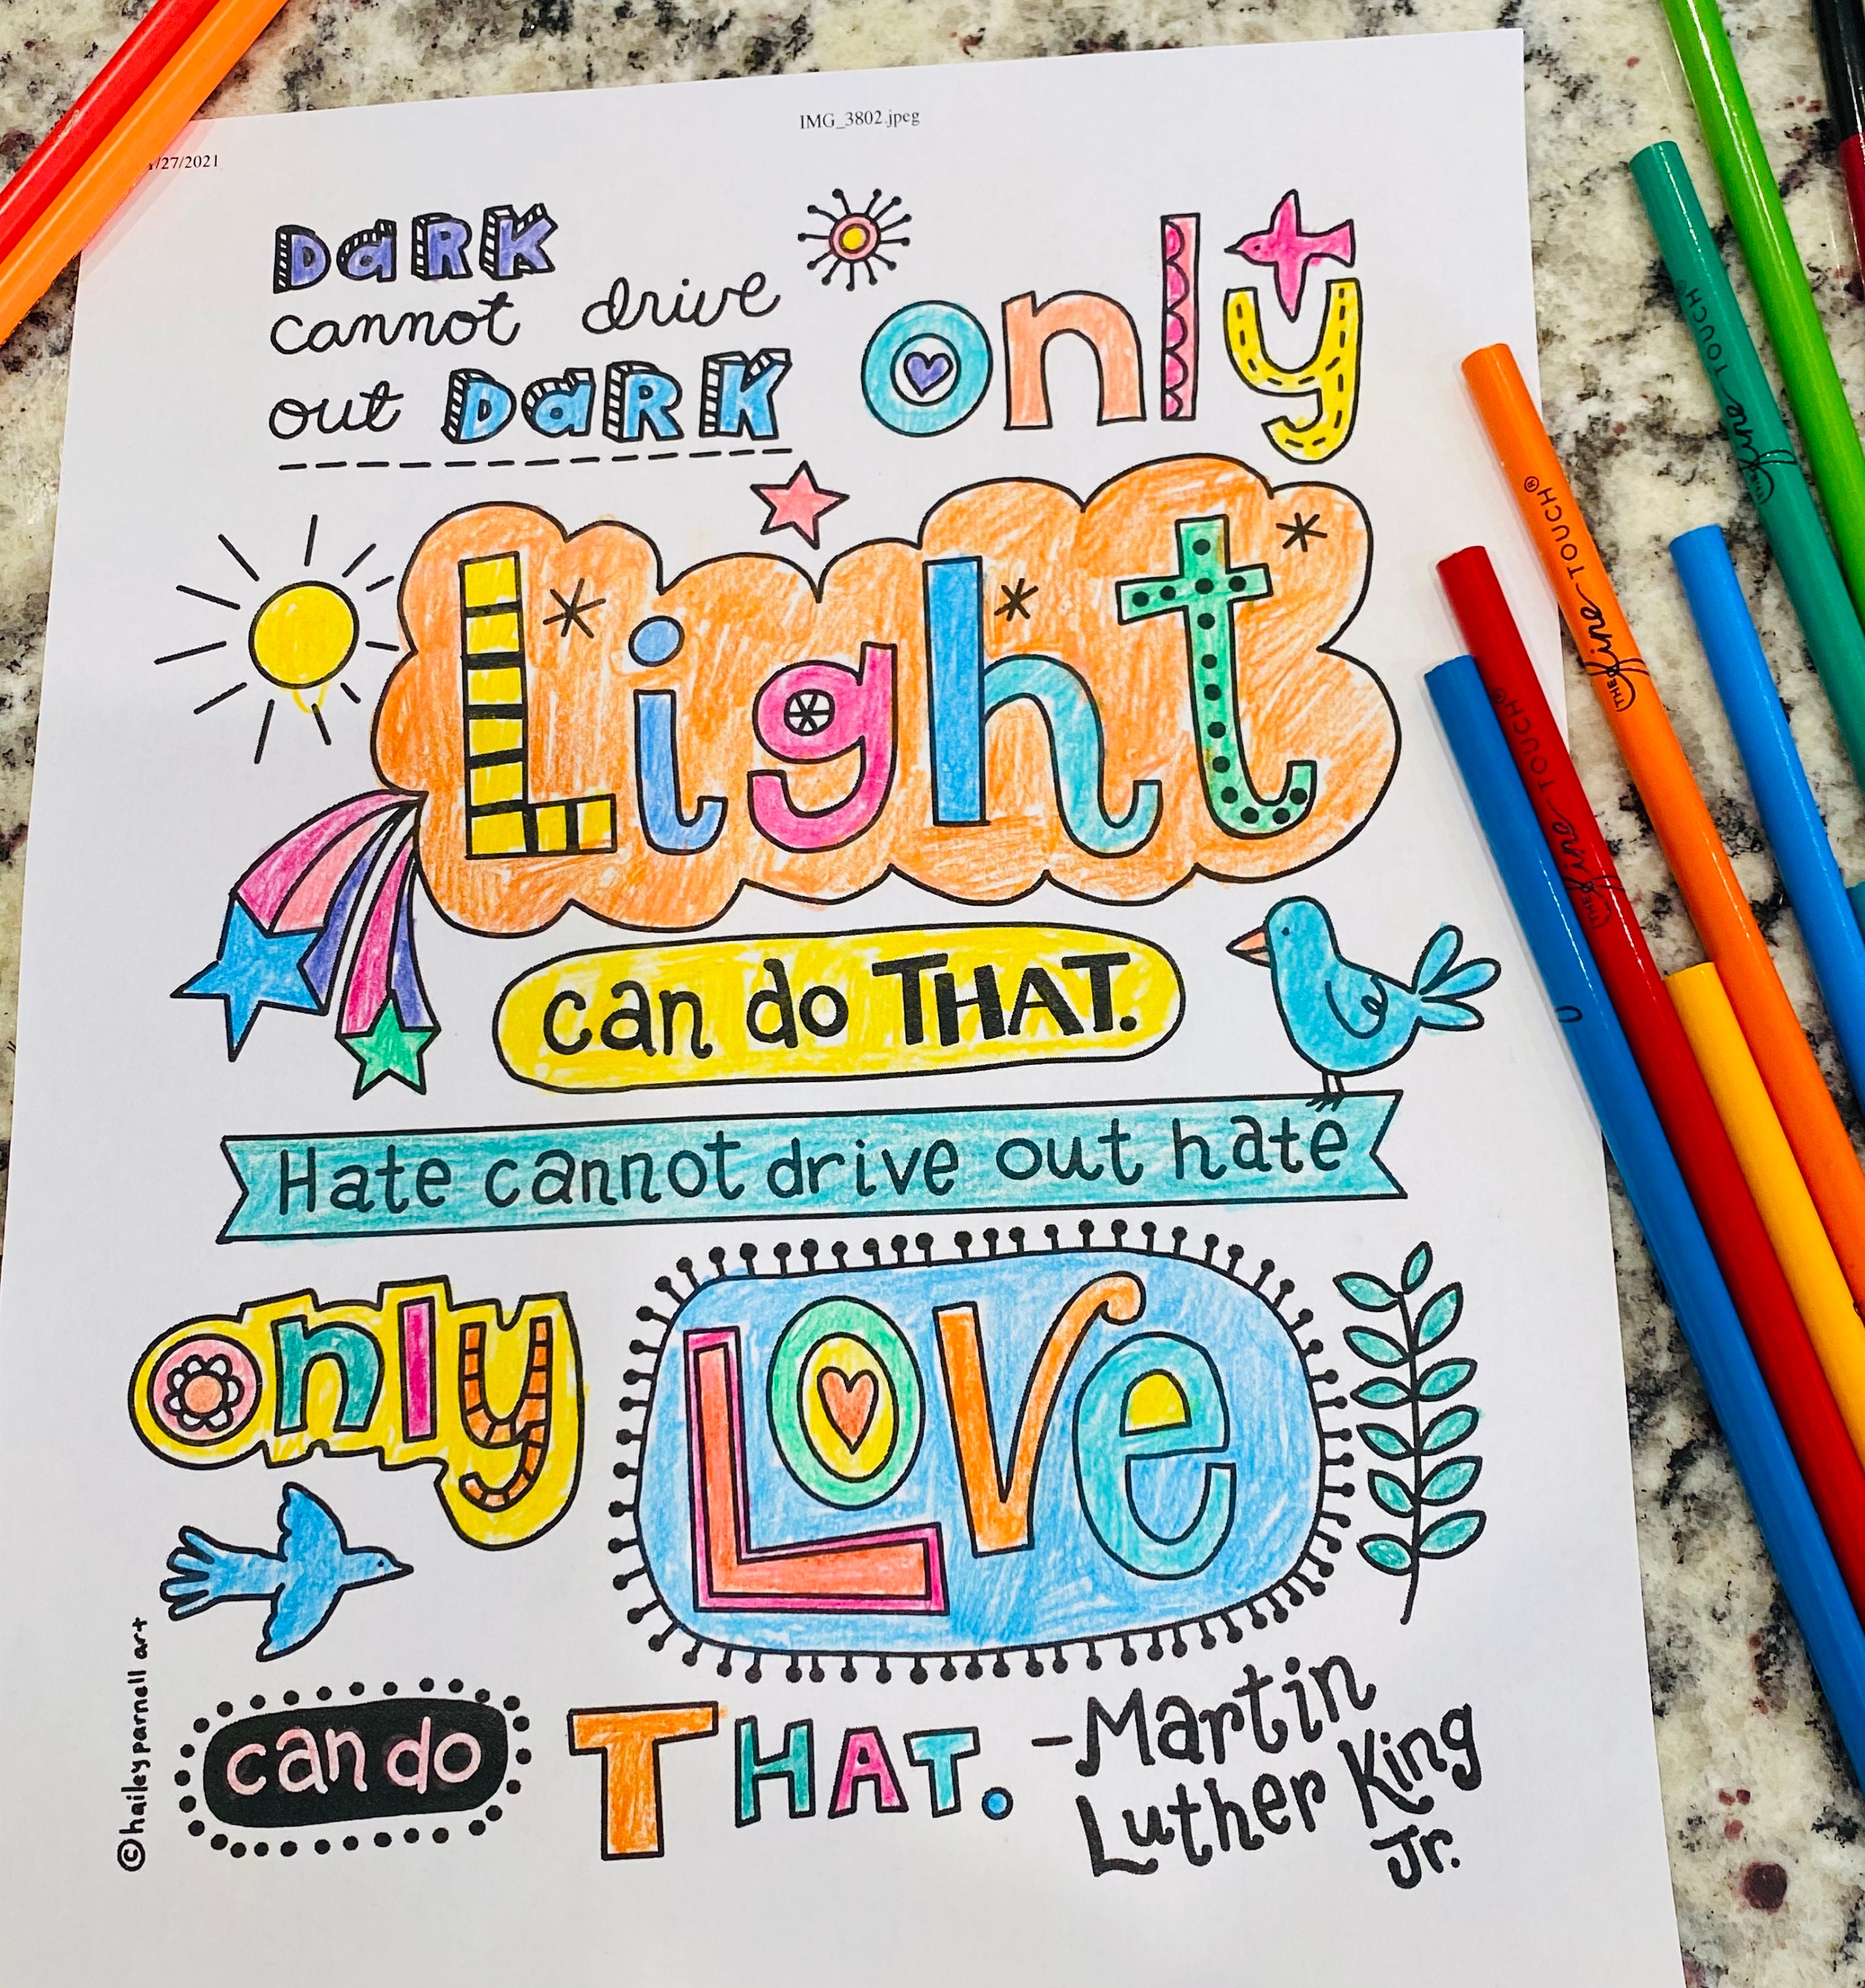 IMG_3802.jpeg
/27/2021
DaRK
cannot drive
out DaRK
only
Light
can do THAT.
Hate cannot drive out hate
only
Love
can do
THAT.
-Martin
Luther King
Jr.
©haileyparnell art
THE fine TOUCH®
THE fine TOUCH®
THE fine TOUCH®